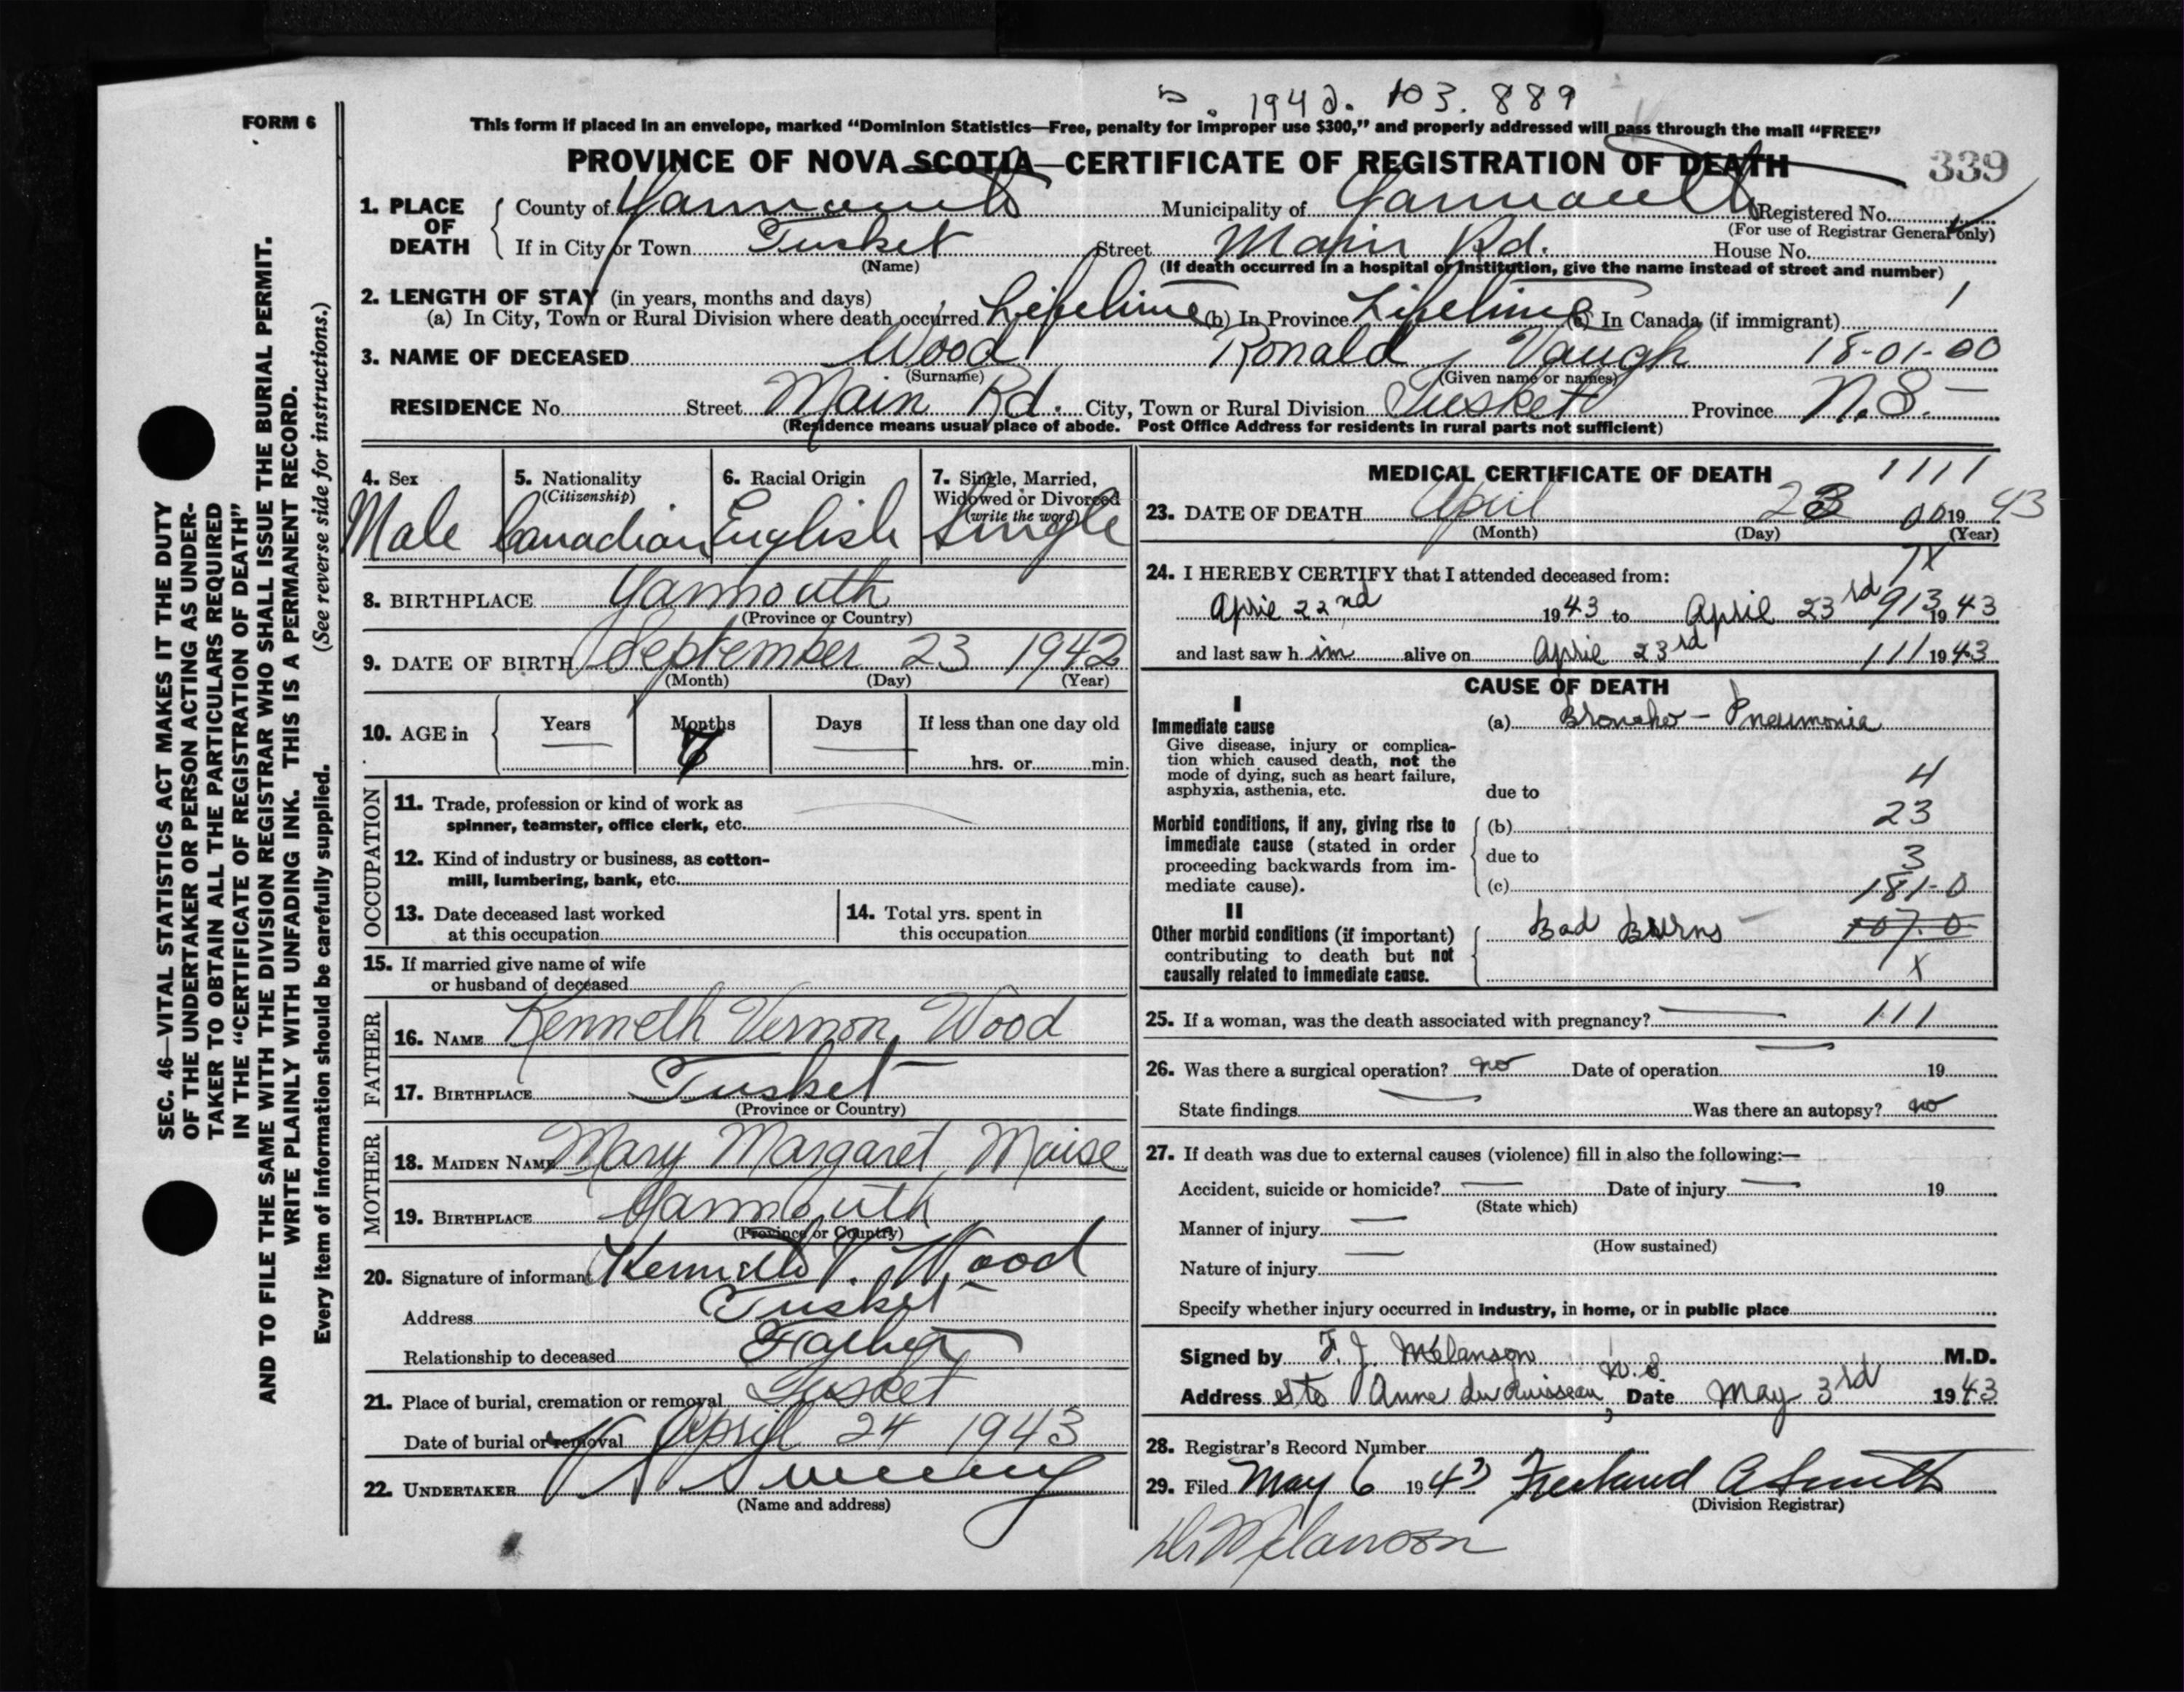 1942. 103.889
FORM 6
This form if placed in an envelope, marked “Dominion Statistics—Free, penalty for improper use $300,” and properly addressed will pass through the mail “FREE”
PROVINCE OF NOVA SCOTIA—CERTIFICATE OF REGISTRATION OF DEATH 339
1. PLACE OF DEATH
County of Yarmouth Municipality of Yarmouth Registered No.
(For use of Registrar General only)
If in City or Town Tusket Street Main Rd. House No.
(Name) (If death occurred in a hospital or institution, give the name instead of street and number)
2. LENGTH OF STAY (in years, months and days) 1
(a) In City, Town or Rural Division where death occurred Lifetime (b) In Province Lifetime (c) In Canada (if immigrant)
3. NAME OF DECEASED Wood Ronald Vaugh 18-01-00
(Surname) (Given name or names)
RESIDENCE No. Street Main Rd. City, Town or Rural Division Tusket Province N.S.
(Residence means usual place of abode. Post Office Address for residents in rural parts not sufficient)
4. Sex 5. Nationality (Citizenship) 6. Racial Origin 7. Single, Married, Widowed or Divorced (write the word)
Male Canadian English Single
8. BIRTHPLACE Yarmouth
(Province or Country)
9. DATE OF BIRTH September 23 1942
(Month) (Day) (Year)
10. AGE in Years Months Days If less than one day old
7 hrs. or min.
OCCUPATION
11. Trade, profession or kind of work as
spinner, teamster, office clerk, etc.
12. Kind of industry or business, as cotton-
mill, lumbering, bank, etc.
13. Date deceased last worked
at this occupation
14. Total yrs. spent in
this occupation
15. If married give name of wife
or husband of deceased
FATHER
16. NAME Kenneth Vernon, Wood
17. BIRTHPLACE Tusket
(Province or Country)
MOTHER
18. MAIDEN NAME Mary Margaret, Muise
19. BIRTHPLACE Yarmouth
(Province or Country)
20. Signature of informant Kenneth V. Wood
Address Tusket
Relationship to deceased Father
21. Place of burial, cremation or removal Tusket
Date of burial or removal April 24 1943
22. UNDERTAKER V S Sweeny
(Name and address)
MEDICAL CERTIFICATE OF DEATH 1111
23. DATE OF DEATH April 23 00 1943
(Month) (Day) (Year)
7X
24. I HEREBY CERTIFY that I attended deceased from:
April 22nd 1943 to April 23rd 913 1943
and last saw him alive on April 23rd 111 1943
CAUSE OF DEATH
I
Immediate cause (a) Broncho - Pneumonia
Give disease, injury or complica-
tion which caused death, not the
mode of dying, such as heart failure,
asphyxia, asthenia, etc.
due to 4
23
Morbid conditions, if any, giving rise to
immediate cause (stated in order
proceeding backwards from im-
mediate cause).
(b)
due to 3
(c) 181-0
II
Other morbid conditions (if important)
contributing to death but not
causally related to immediate cause.
Bad Burns 107.0
X
25. If a woman, was the death associated with pregnancy? 111
26. Was there a surgical operation? no Date of operation 19
State findings Was there an autopsy? no
27. If death was due to external causes (violence) fill in also the following:—
Accident, suicide or homicide? Date of injury 19
(State which)
Manner of injury
(How sustained)
Nature of injury
Specify whether injury occurred in industry, in home, or in public place
Signed by F. J. Melanson M.D.
Address Ste Anne du Ruisseau, N.S. Date May 3rd 1943
28. Registrar's Record Number
29. Filed May 6 1943 Freeland A Smith
(Division Registrar)
Dr Melanson
SEC. 46—VITAL STATISTICS ACT MAKES IT THE DUTY
OF THE UNDERTAKER OR PERSON ACTING AS UNDER-
TAKER TO OBTAIN ALL THE PARTICULARS REQUIRED
IN THE “CERTIFICATE OF REGISTRATION OF DEATH”
AND TO FILE THE SAME WITH THE DIVISION REGISTRAR WHO SHALL ISSUE THE BURIAL PERMIT.
WRITE PLAINLY WITH UNFADING INK. THIS IS A PERMANENT RECORD.
Every item of information should be carefully supplied. (See reverse side for instructions.)